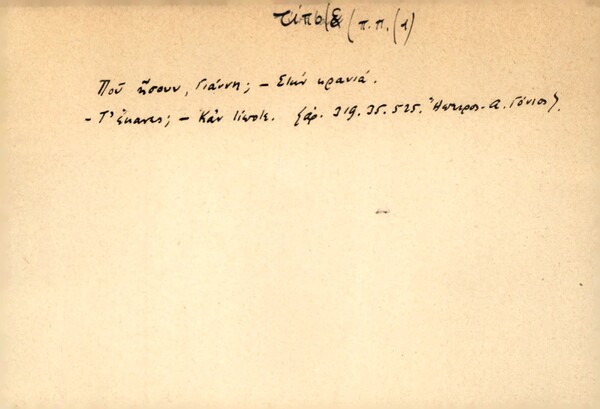 τίποτε (π.π.(1)
Ποῦ ἤσουν, Γιάννη; – Στὴν κρανιά.
– Τ' ἔκανες; – Κἂν τίποτε. (ἀρ. 319. 35. 525. Ἤπειρος - Α. Γόνιος).